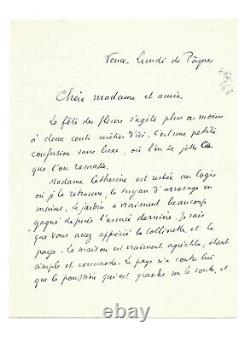 Vence - Lundi de Pâques
Chère madame et amie.
La fête des fleurs s'agite plus ou moins
à deux cents mètres d'ici. C'est une petite
confusion sans luxe, où l'on se jette ce
que l'on ramasse.
Madame Catherine est restée au logis
où je la retrouve, le tuyau d'arrosage en
mains. Le jardin a vraiment beaucoup
gagné depuis l'année dernière. Je sais
que vous avez apprécié la collinette et le
pays. La maison est vraiment agréable, étant
simple et commode. Le pays n'a contre lui
que la poussière qui est grande sur la route, et
ebay